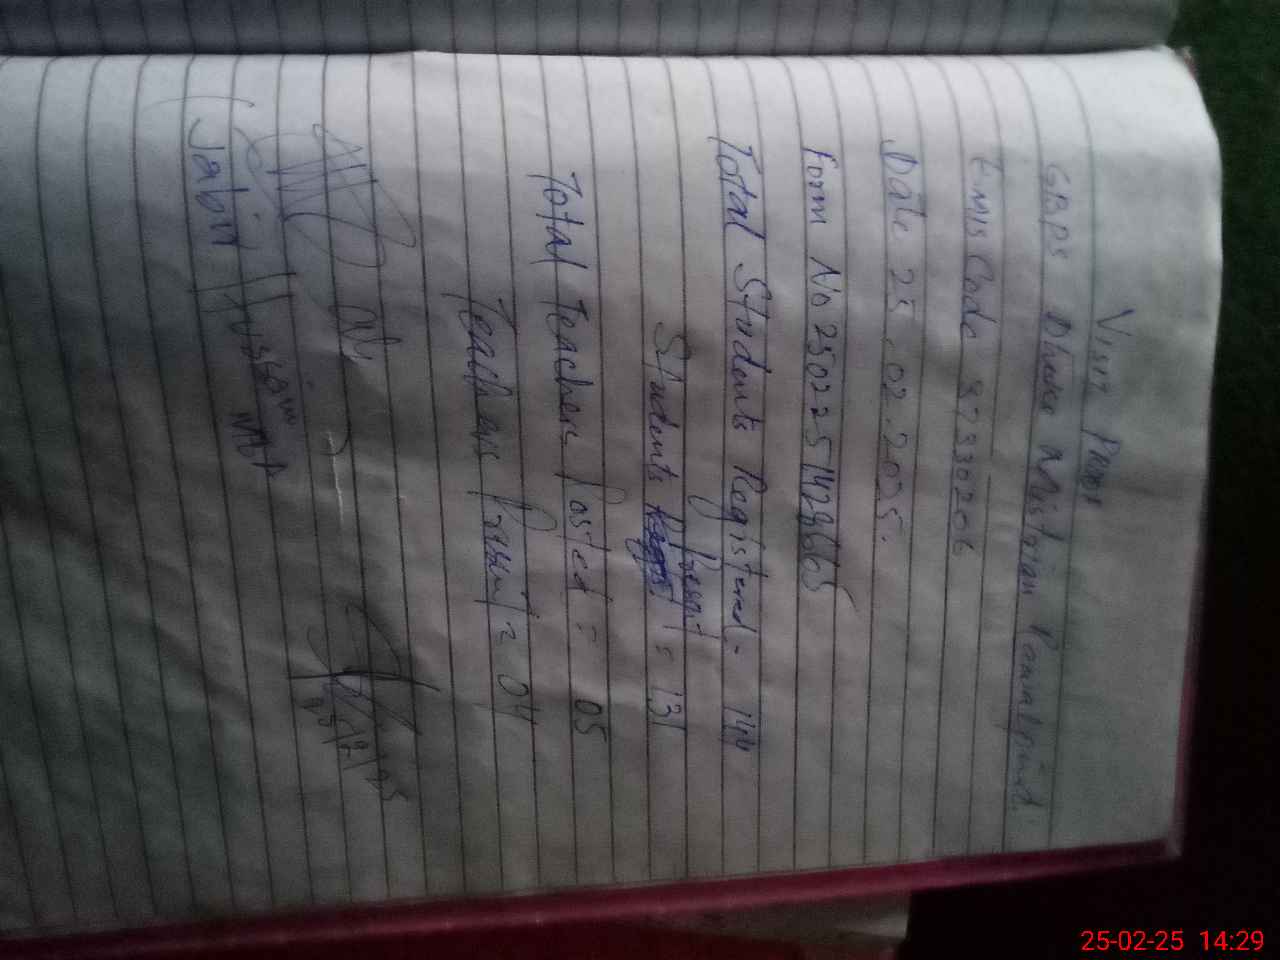 Visit Proof
GBPS Dhake Mistrian
Emis Code 87330206
Date 25.02.2025.
Form No 250225142866
Total Students Registered = 144
Present
Students = 131
Total Teachers Posted = 05
Teachers Present = 04
Jabir Hussain
25-02-25 14:29